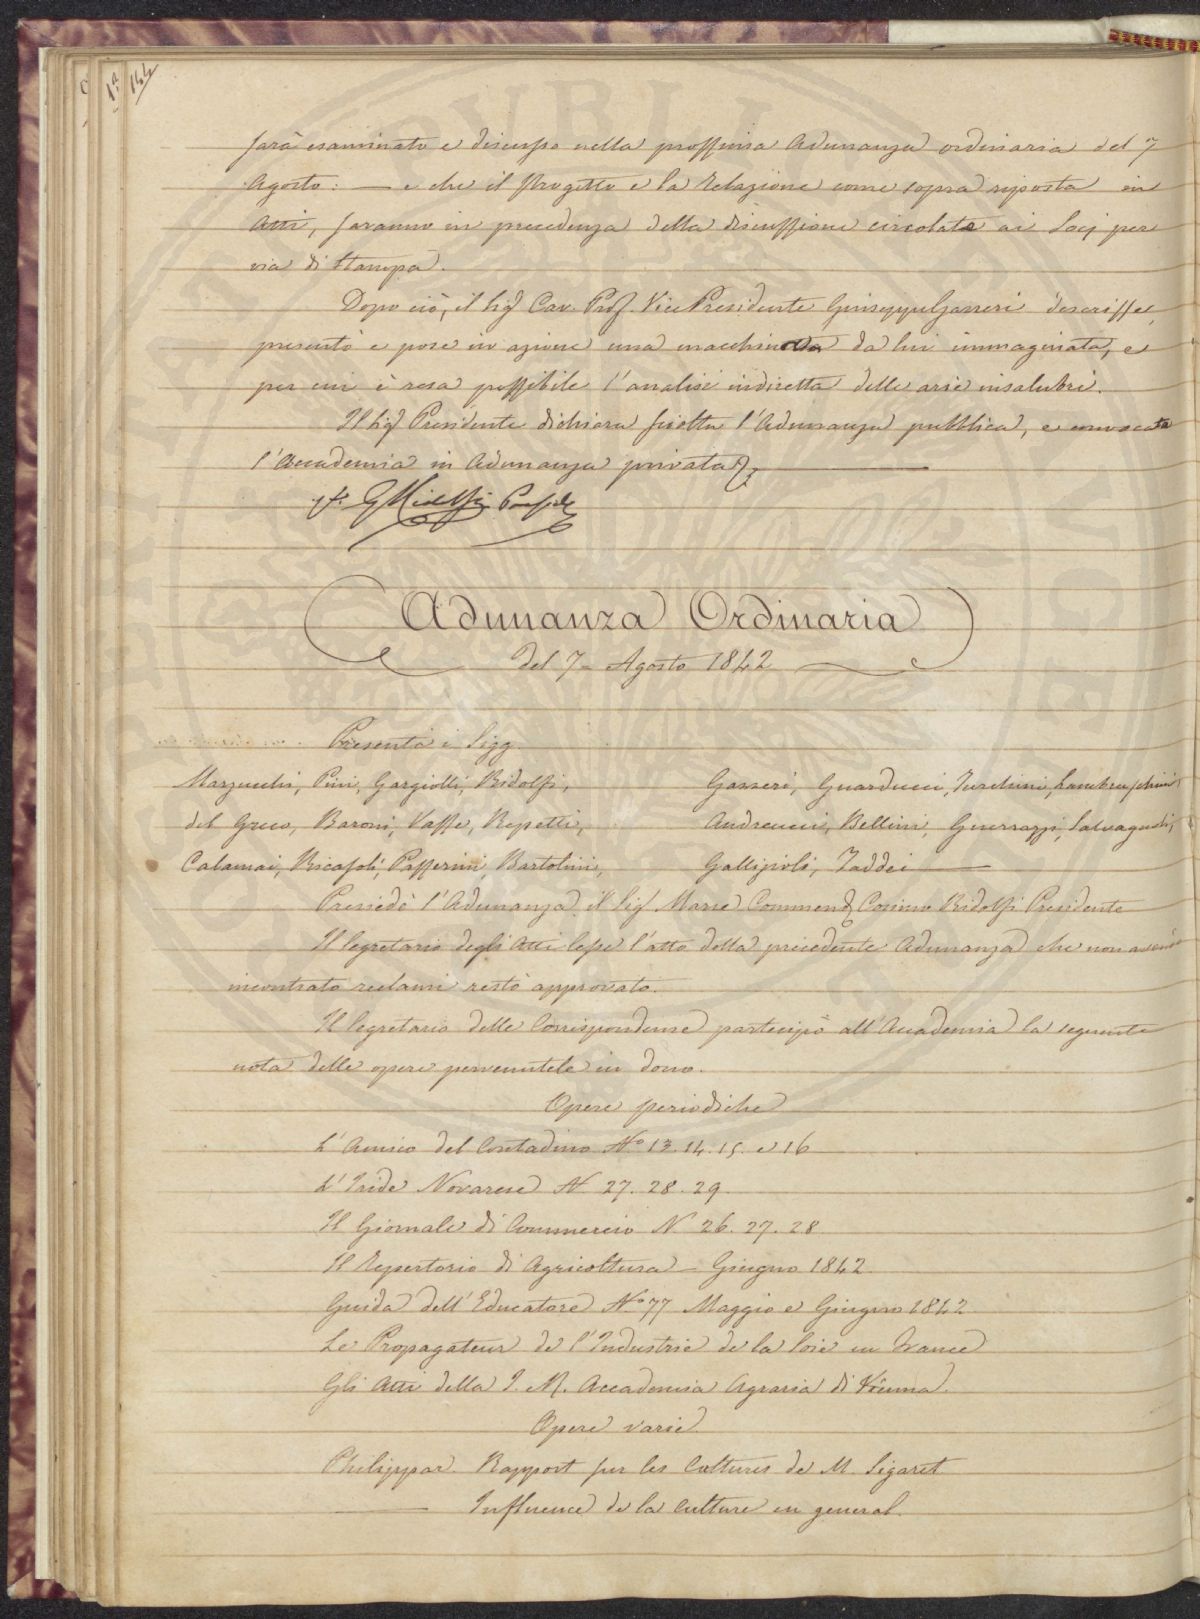 144
sarà esaminato e discusso nella prossima Adunanza ordinaria del 7
Agosto: — e che il Progetto e la Relazione come sopra riposta in
Atti, saranno in precedenza della discussione circolate ai Socj per
via di Stampa.
Dopo ciò, il Sig. Cav. Prof. Vice Presidente Giuseppe Gazzeri descrisse,
presentò e pose in azione una macchinetta da lui immaginata, e
per cui è resa possibile l'analisi indiretta delle arie insalubri.
Il Sig. Presidente dichiara sciolta l'Adunanza pubblica, e convocata
l'Accademia in Adunanza privata
Ridolfi
Adunanza Ordinaria
del 7 - Agosto 1842
Presenti i Sigg.
Marzucchi, Pini, Gargiolli, Ridolfi, Gazzeri, Guarducci, Turchini, Lambruschini
del Greco, Baroni, Vasse, Repetti, Andreucci, Bellini, Guerrazzi, Salvagnoli,
Calamai, Ricasoli, Passerini, Bartolini, Gallizioli, Taddei
Presiedè l'Adunanza il Sig. Marse Commend. Cosimo Ridolfi Presidente
Il Segretario degli Atti lesse l'atto della precedente Adunanza che non avendo
incontrato reclami restò approvato.
Il Segretario delle Corrispondenze partecipò all'Accademia la seguente
nota delle opere pervenutele in dono.
Opere periodiche
L'Amico del Contadino N.° 13. 14. 15. e 16
L'Iride Novarese N 27. 28. 29.
Il Giornale di Commercio N. 26. 27. 28
Il Repertorio di Agricoltura - Giugno 1842.
Guida dell'Educatore N.° 77 Maggio e Giugno 1842
Le Propagateur de l'Industrie de la Soie en France
Gli Atti della I. R. Accademia Agraria di Vienna.
Opere varie.
Philippar. Rapport sur les Cultures de M. Sigaret
— Influence de la culture en general.